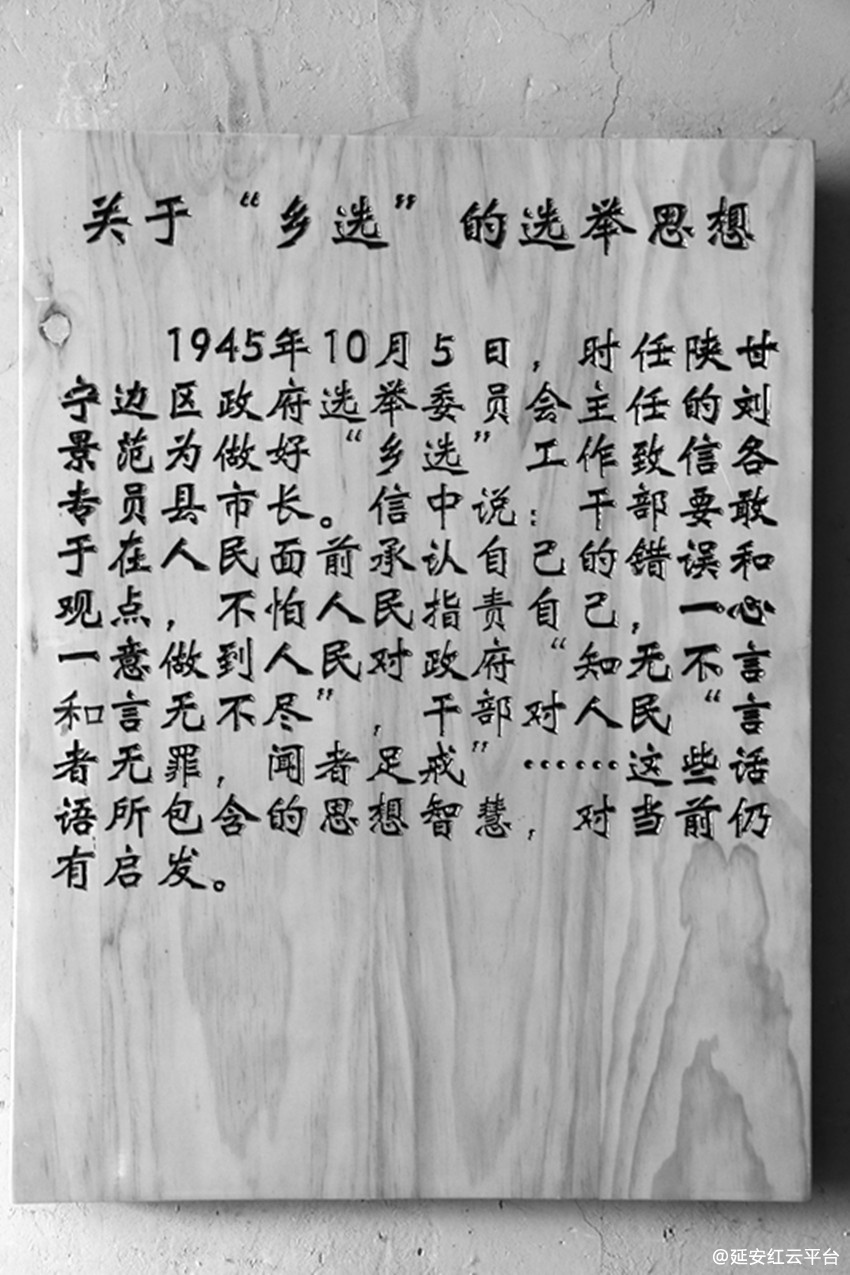 关于“乡选”的选举思想
1945年10月5日，时任陕甘
宁边区政府选举委员会主任的刘
景范为做好“乡选”工作致信各
专员县市长。信中说：干部要敢
于在人民面前承认自己的错误和
观点，不怕人民指责自己，一心
一意做到人民对政府“知无不言
和言无不尽”，干部对人民“言
者无罪，闻者足戒”……这些话
语所包含的思想智慧，对当前仍
有启发。
@延安红云平台